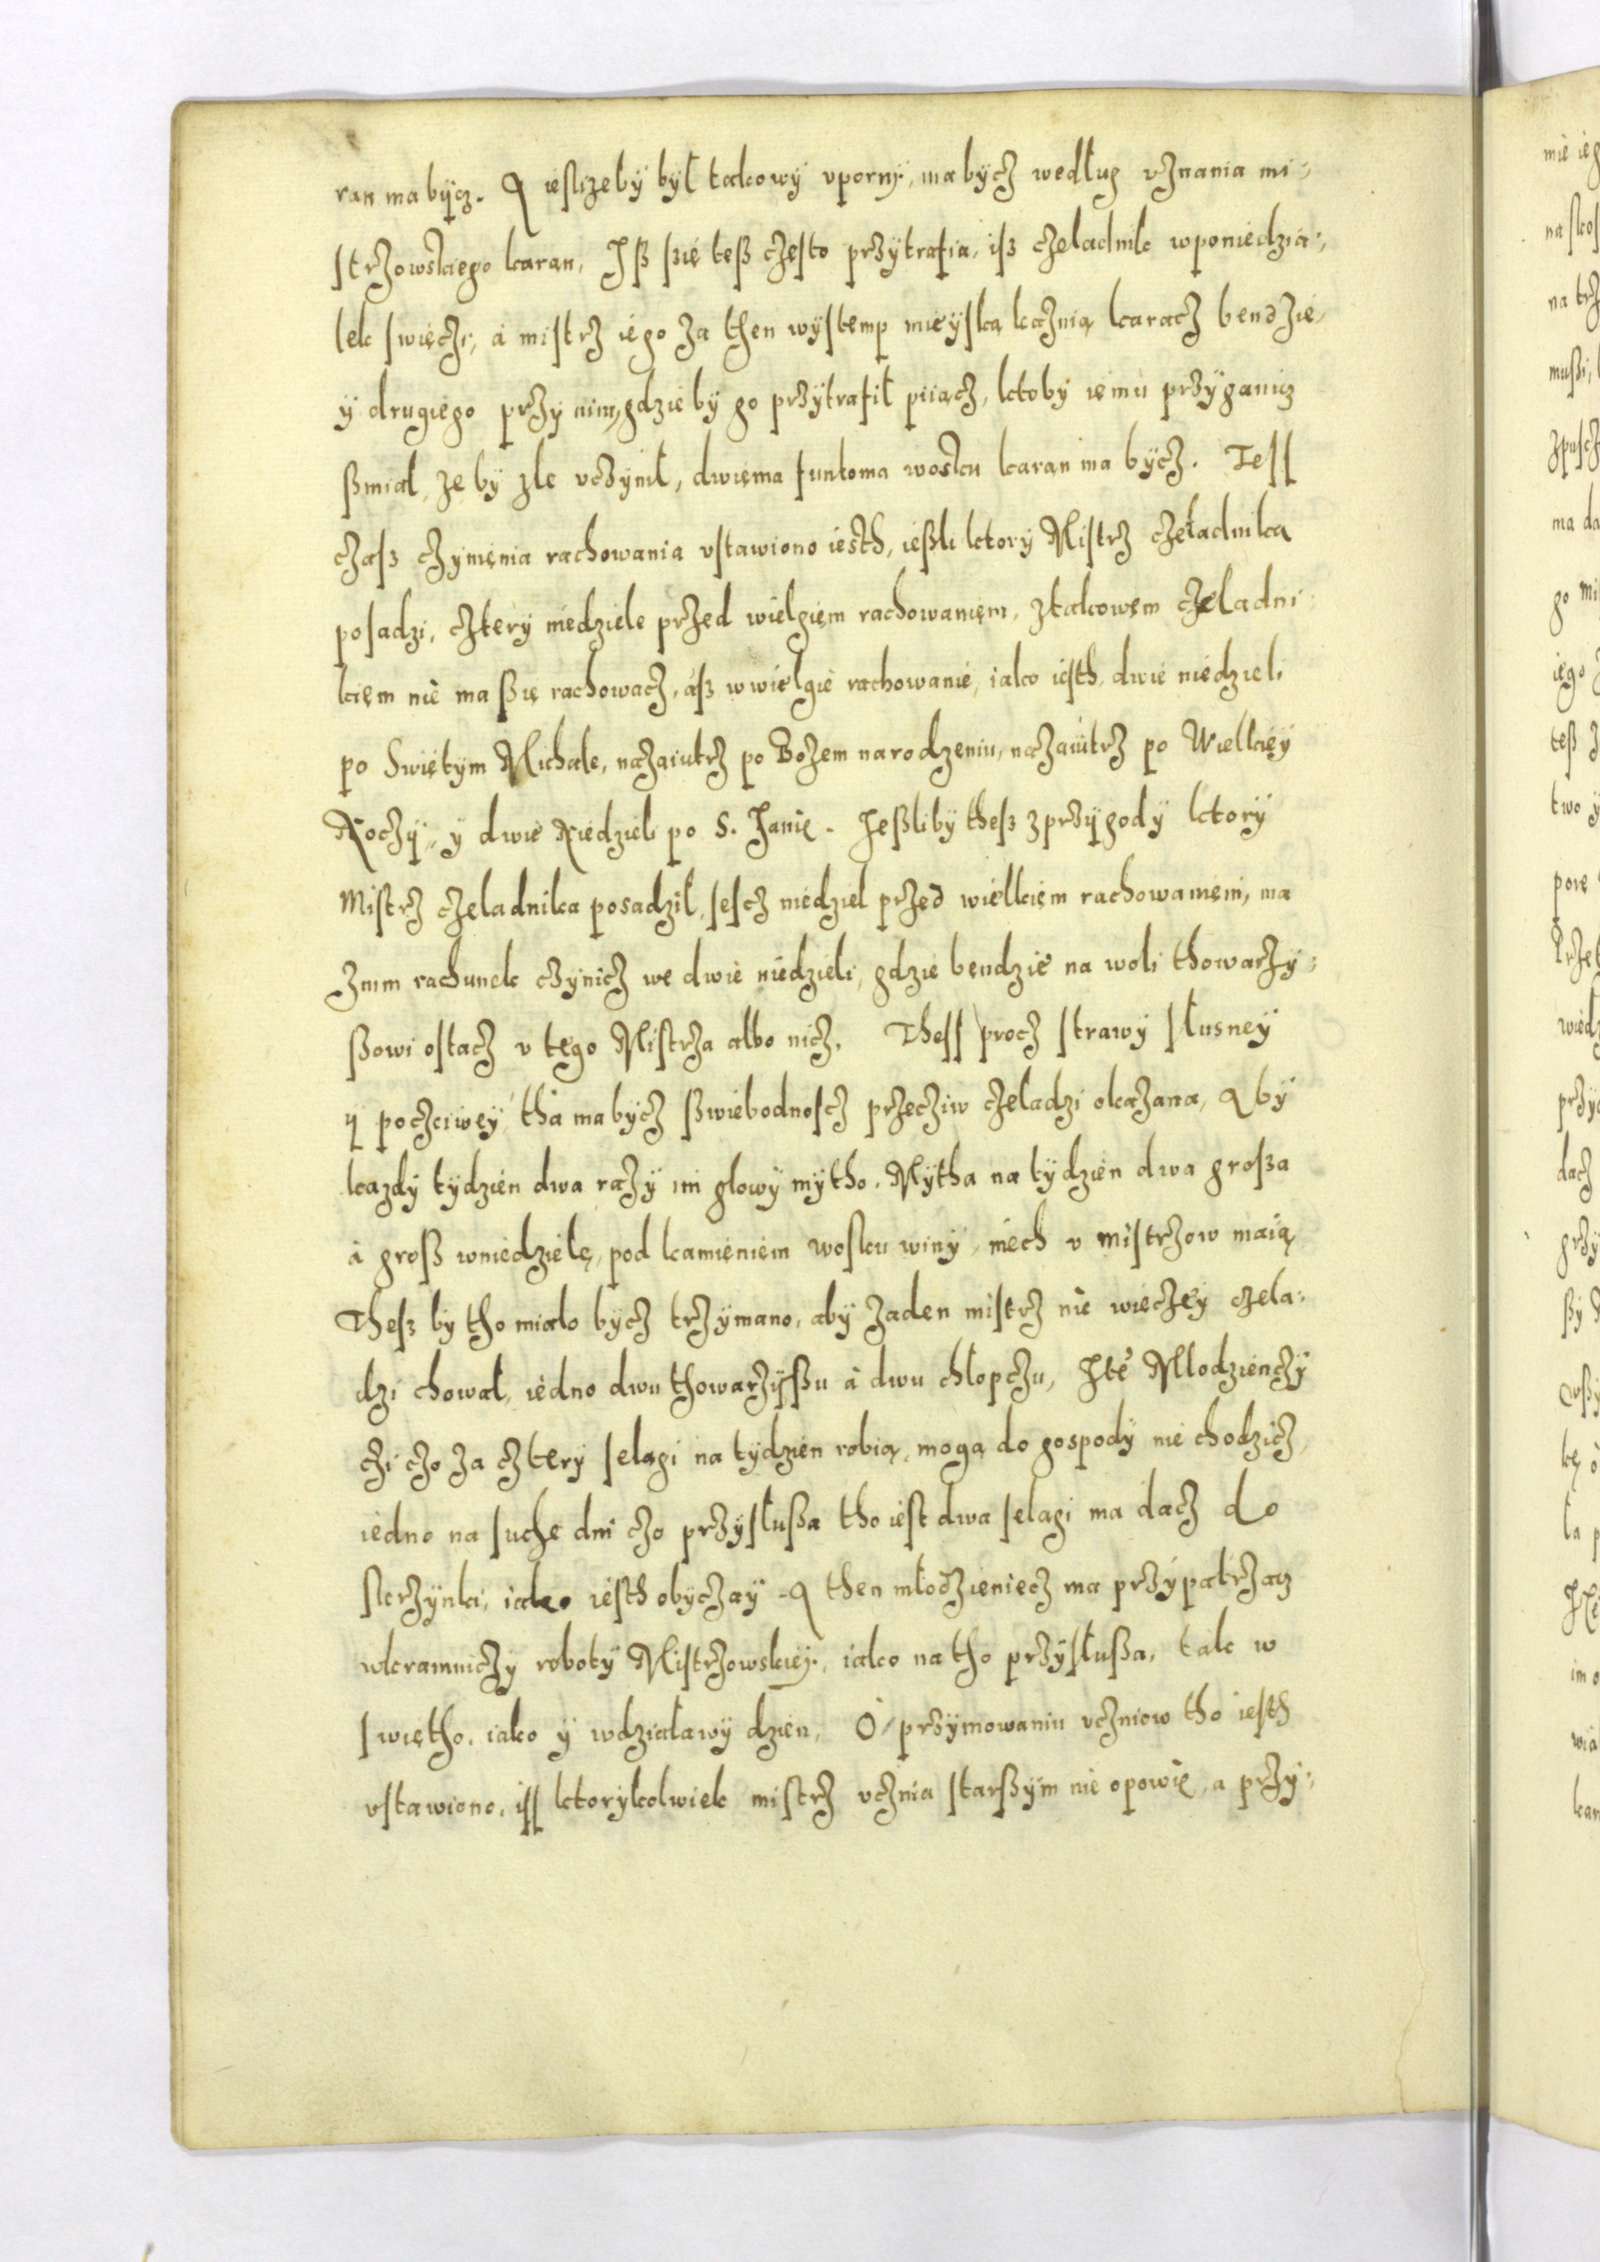 ran ma bycz. A iestzeby był takowy vporny, ma bycz według vznania mi-
strzowskiego karan, Iß się teß często przytrafia, isz czeladnik wponiedzia-
lek swięczi, a mistrz iego za then wystemp mieyską kaznią karacz bendzie,
y drugiego przy nim, gdzie by go przytrafił piiącz, ktoby iemu przyganicz
ßmiał, ze by zle vczynił, dwiema funtoma wosku karan ma bycz. Tess
czasz czynienia rachowania vstawiono iesth, ießli ktory Mistrz czeladnika
posadzi, cztery niedziele przed wielgiem rachowaniem, ztakowem czeladni
kiem nie ma ßię rachowacz, asz w wielgie rachowanie, iako iesth, dwie niedzieli
po Swiętym Michale, nazaiutrz po Bozem narodzeniu, nazaiutrz po Wielkiey
Noczy, y dwie Niedzieli po S. Janie. Jeßliby thesz zprzygody ktory
Mistrz czeladnika posadził, sescz niedziel przed wielkiem rachowaniem, ma
znim rachunek czynicz we dwie niedzieli, gdzie bendzie na woli thowarzy-
ßowi ostacz v tego Mistrza albo nicz. Thess procz strawy słusney
y poczciwey, tha ma bycz ßwiebodnoscz przecziw czeladzi okazana, A by
kazdy tydzien dwa razy im głowy mytho. Mytha na tydzien dwa großa
a groß wniedzielę, pod kamieniem wosku winy, niech v mistrzow maią
Thesz by tho miało bycz trzymano, aby zaden mistrz nie więczey czela-
dzi chował, iedno dwu thowarzyßu a dwu chłopczu, Ite Młodzienczy
czi czo za cztery selągi na tydzien robią, mogą do gospody nie chodzicz,
iedno na suche dni czo przysłußa tho iest dwa selągi ma dacz do
skrzynki, iako iesth obyczay. A then młodzieniecz ma przypatrzacz
wkramniczy roboty Mistrzowskiey, iako na tho przysłußa, tak w
swiętho, iako y wdziaławy dzien, O przymowaniu vczniow tho iesth
vstawiono, iss ktorykolwiek mistrz vcznia starßym nie opowie, a przy-